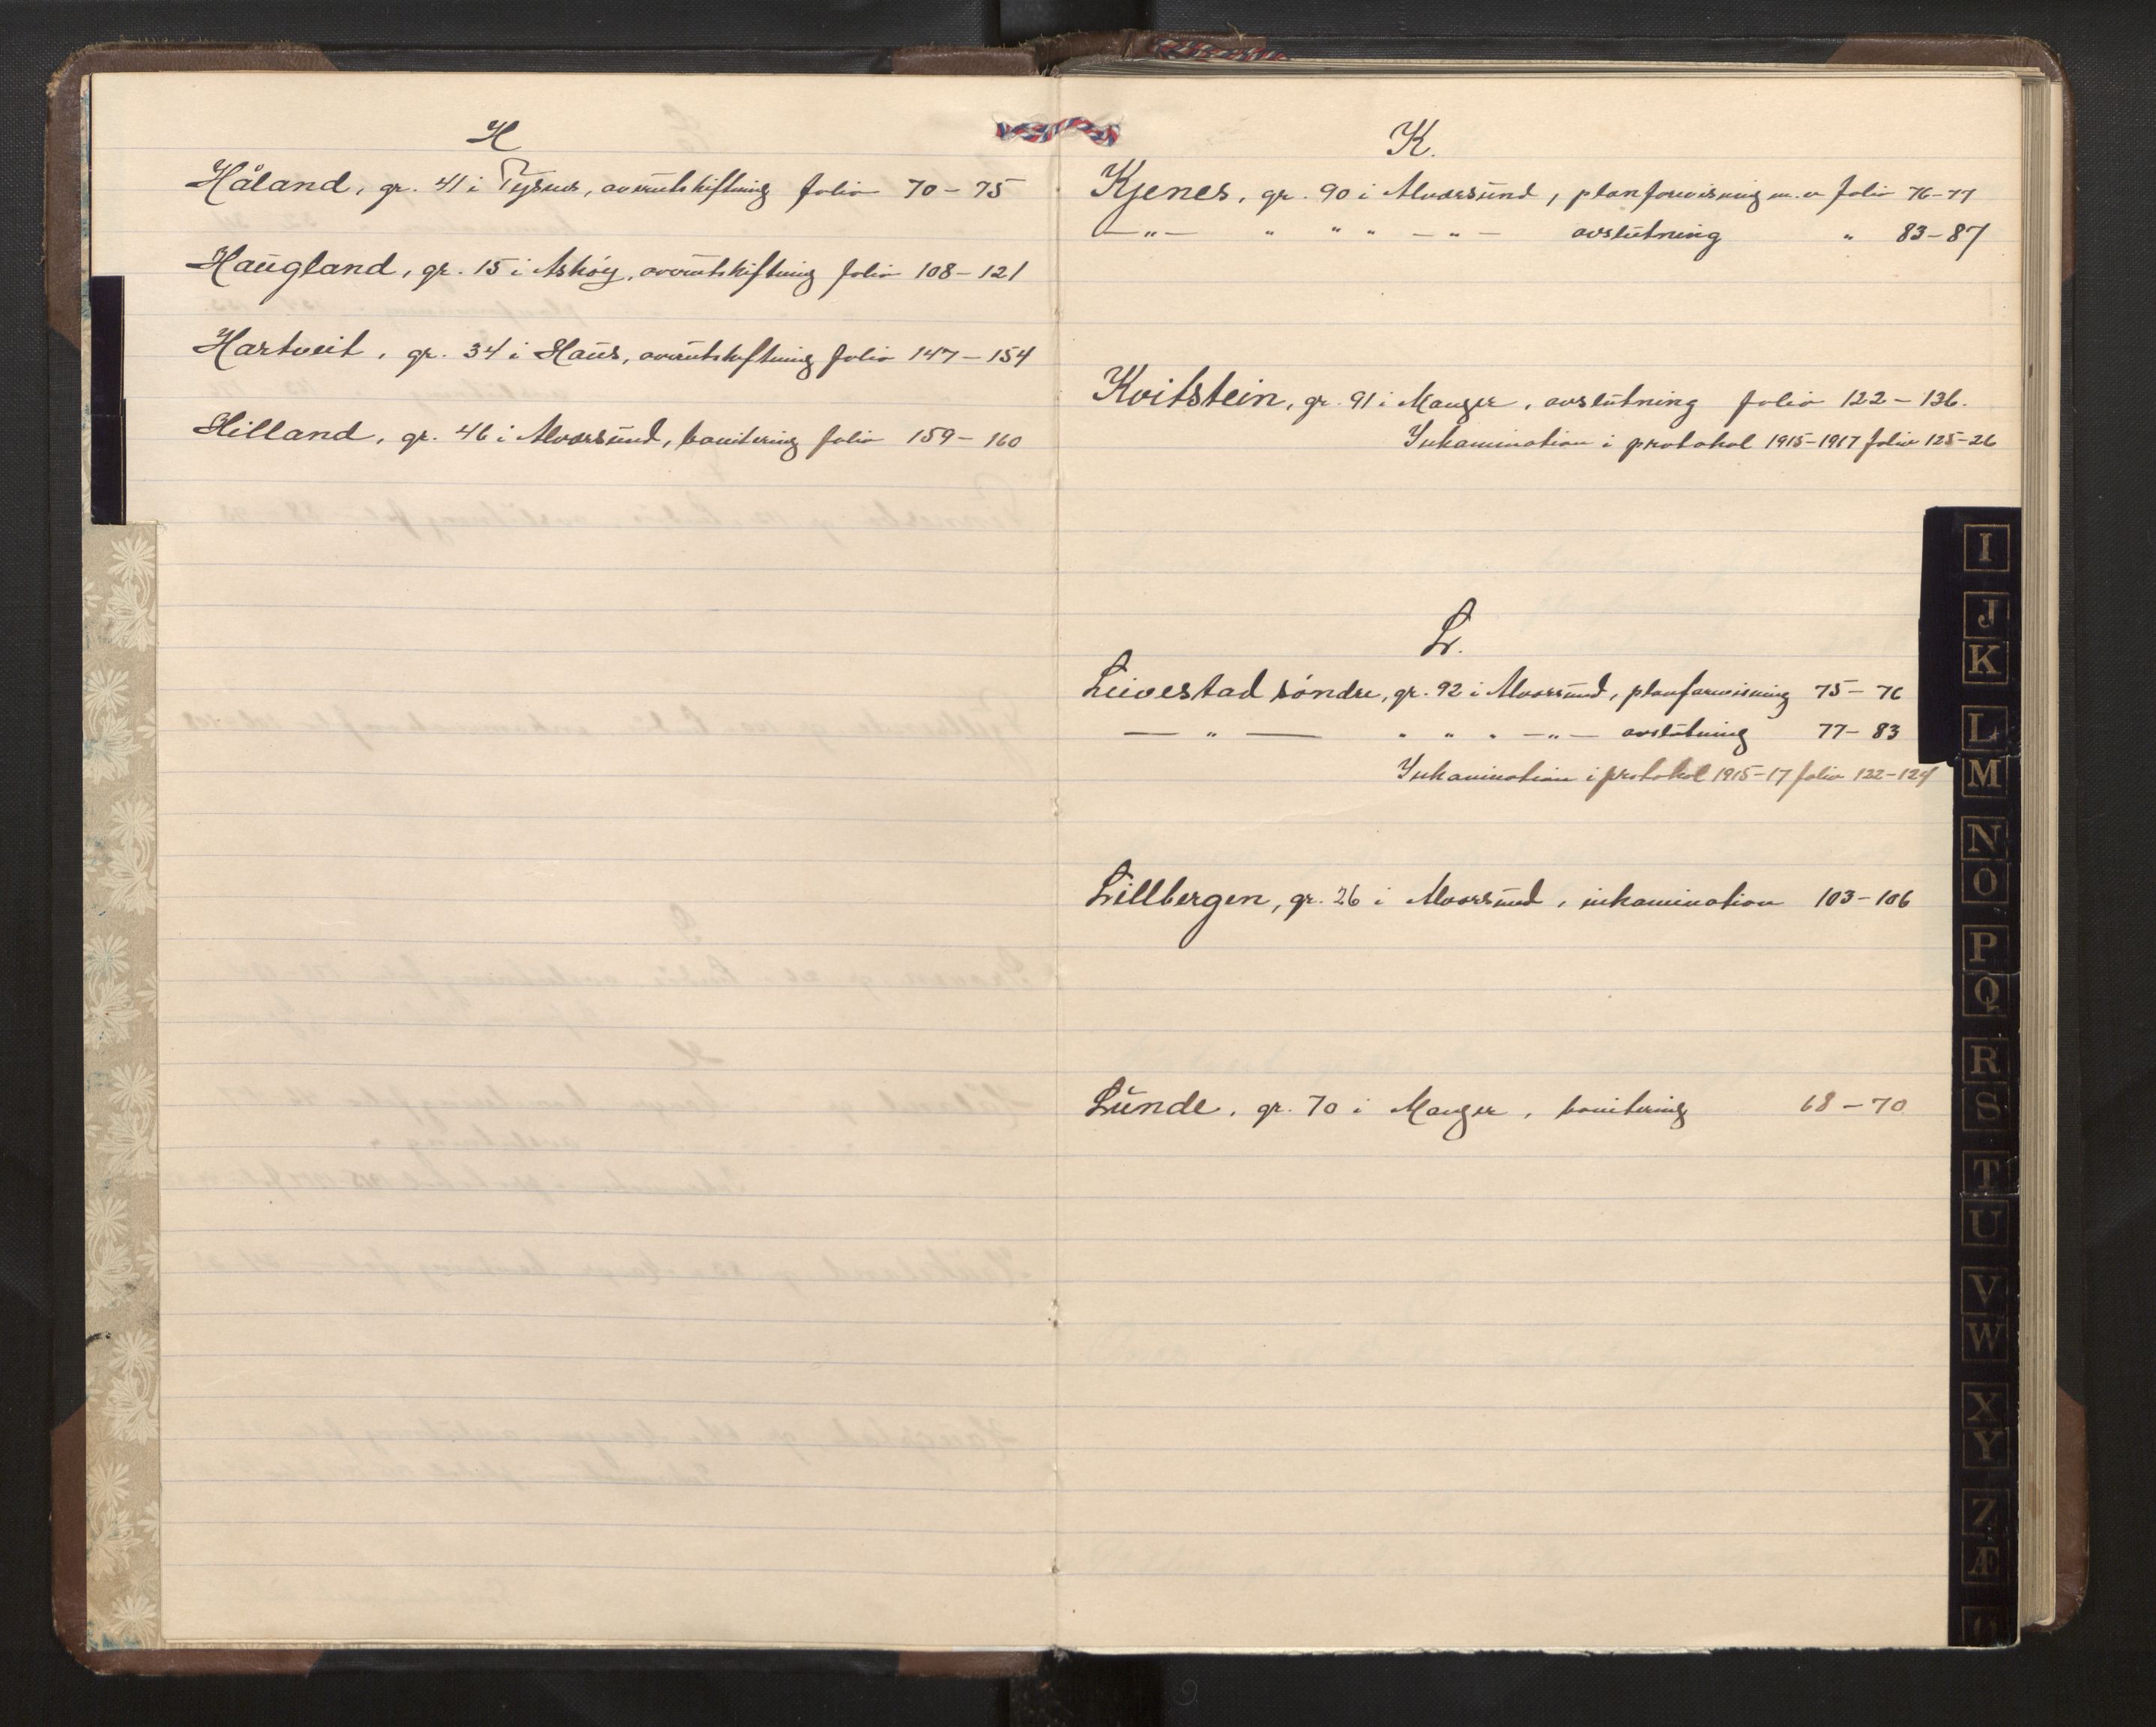 H
Håland, gr. 41 i Tysnes, overutskiftning folio 70-75
Haugland, gr. 15 i Askøy, overutskiftning folio 108-121
Hartveit, gr. 34 i Haus, overutskiftning folio 147-154
Hilland, gr. 46 i Alversund, bonitering folio 159-160
K.
Kjenes, gr. 90 i Alversund, planforevisning m. v folio 76-77
—"— " " " —"— avslutning " 83-87
Kvitstein, gr. 91 i Manger, avslutning folio 122-136.
Inkamination i protokol 1915-1917 folio 125-26
L.
Leivestad søndre, gr. 92 i Alversund, planforevisning 75-76
—"— " " " —"— avslutning 77-83
Inkamination i protokol 1915-17 folio 122-124
Lillbergen, gr. 26 i Alversund, inkamination 103-106
Lunde, gr. 70 i Manger, bonitering 68-70
I
J
K
L
M
N
O
P
Q
R
S
T
U
V
W
X
Y
Z
Æ